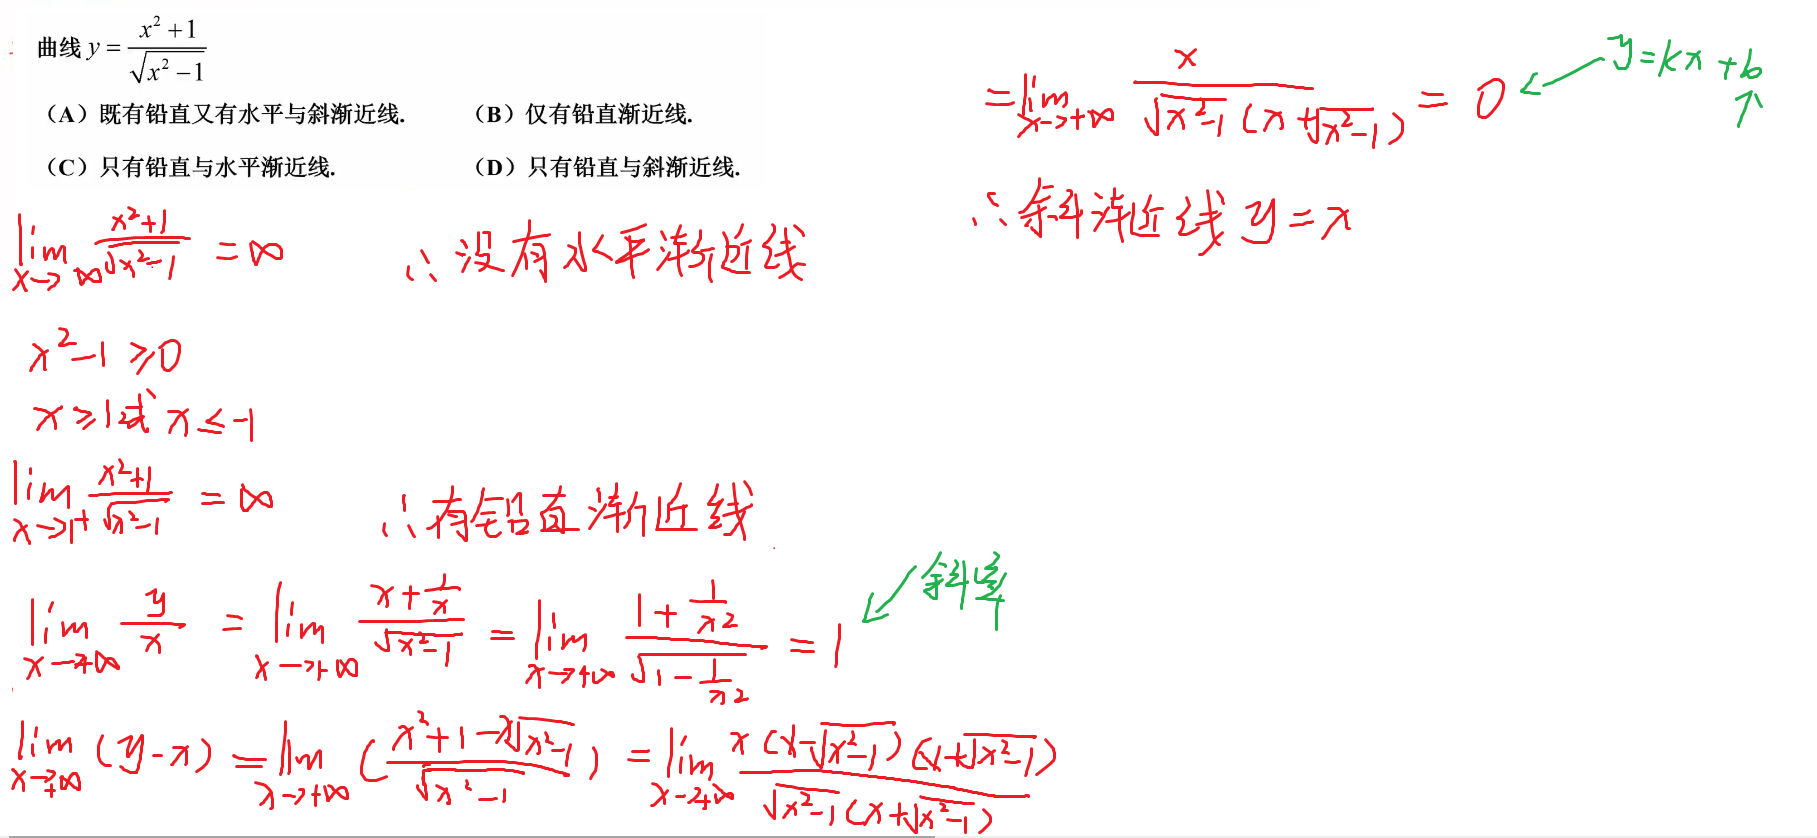 曲线 y = (x² + 1) / √(x² − 1)
（A）既有铅直又有水平与斜渐近线.
（B）仅有铅直渐近线.
（C）只有铅直与水平渐近线.
（D）只有铅直与斜渐近线.
lim x→∞ (x²+1)/√(x²−1) = ∞ ∴没有水平渐近线
x²−1 ≥ 0
x ≥ 1 或 x ≤ −1
lim x→1⁺ (x²+1)/√(x²−1) = ∞ ∴有铅直渐近线
lim x→+∞ y/x = lim x→+∞ (x + 1/x)/√(x²−1) = lim x→+∞ (1 + 1/x²)/√(1 − 1/x²) = 1 斜率
lim x→+∞ (y−x) = lim x→+∞ ((x²+1−x√(x²−1))/√(x²−1)) = lim x→+∞ x(x−√(x²−1))(x+√(x²−1)) / √(x²−1)(x+√(x²−1))
= lim x→+∞ x / √(x²−1)(x+√(x²−1)) = 0 y=kx+b
∴斜渐近线 y=x